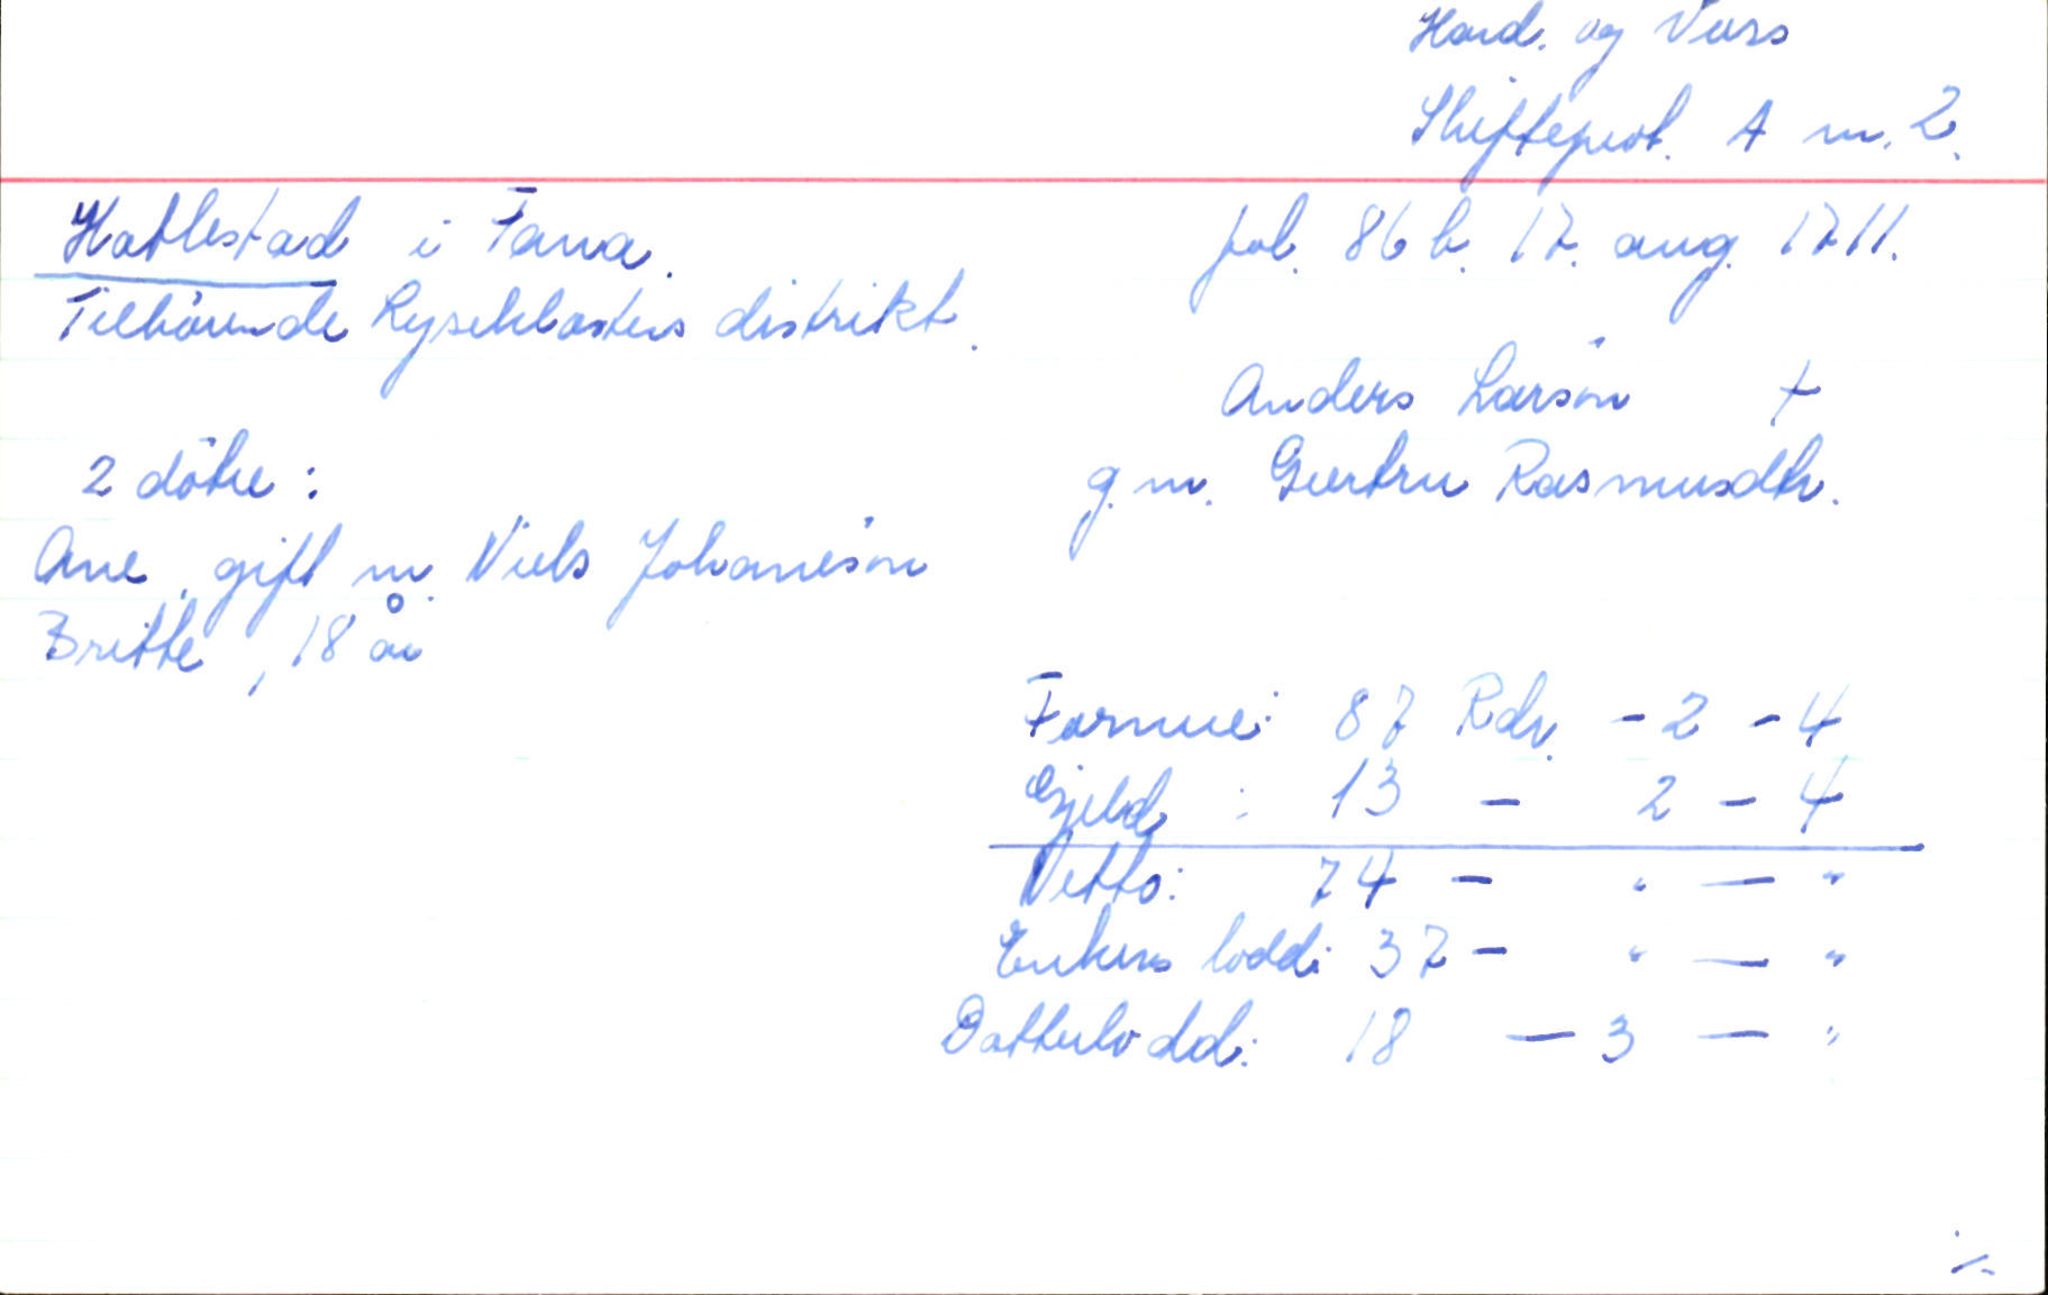 Hard. og Voss
Skifteprot. A nr. 2.
Hatlestad i Fana.
fol. 86 b. 17. aug. 1711.
Tilhörende Lyseklosters distrikt.
Anders Larsön +
g.m. Giertru Rasmusdtr.
2 dötre:
Ane, gift m. Niels Johanesön
Britte, 18 år
Formue: 87 Rdr. - 2 - 4
Gjeld : 13 - 2 - 4
Netto: 74 - " - "
Enkens lodd: 37 - " - "
Datterlodd: 18 - 3 - "